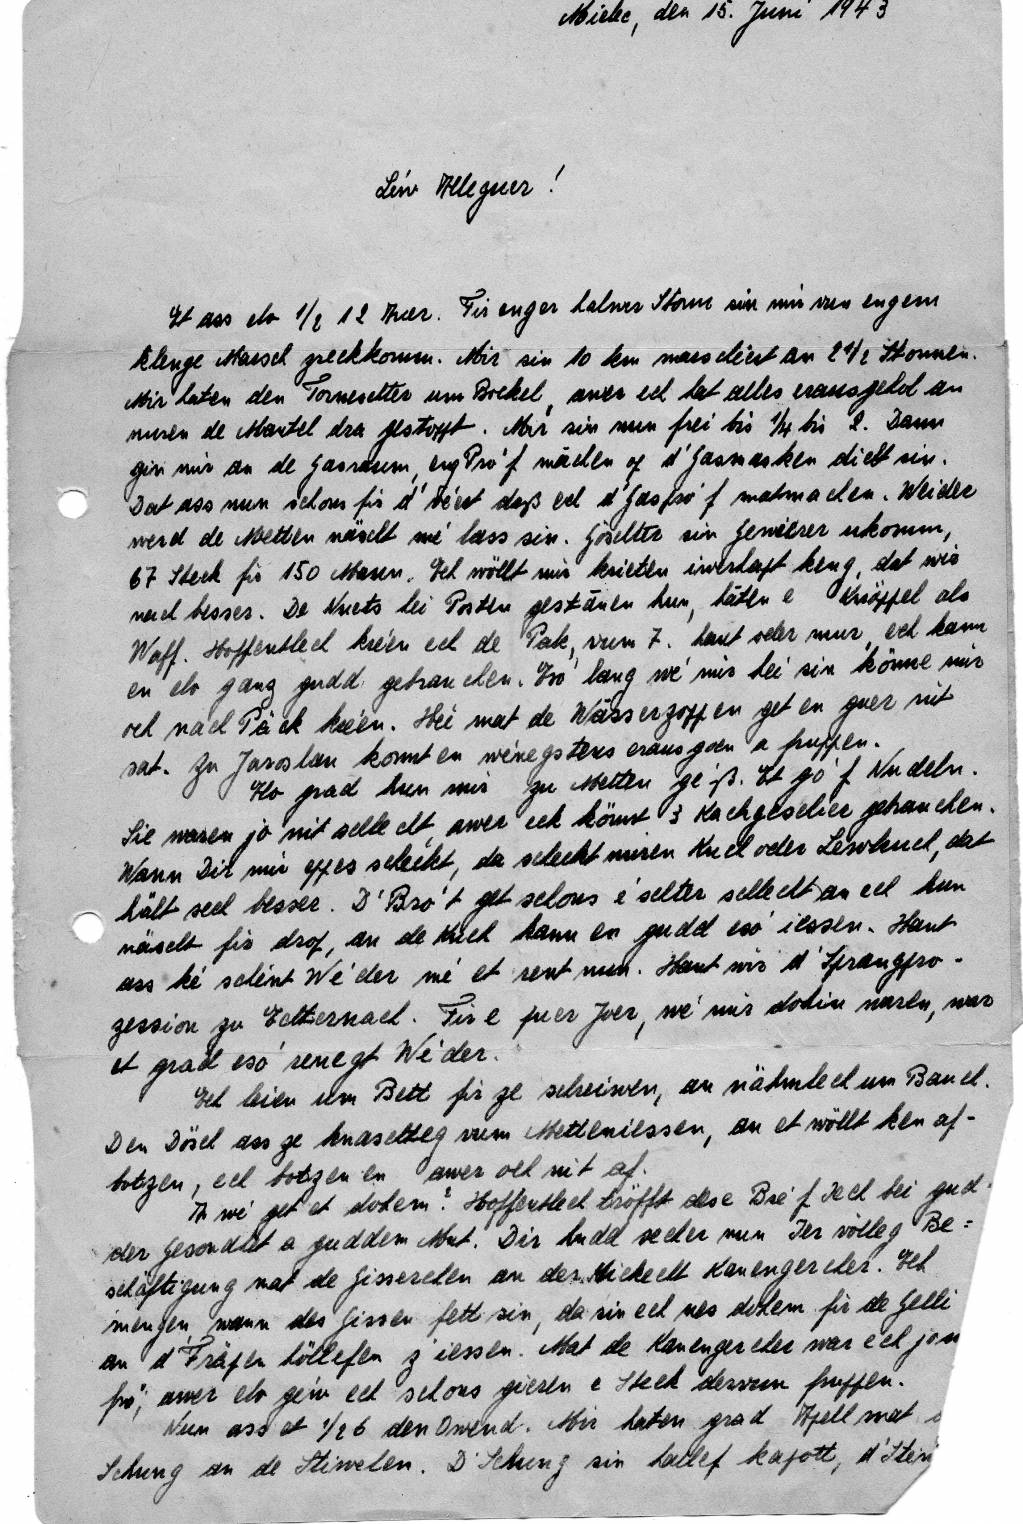 Mielec, den 15. Juni 1943
Léiw Alleguer!
Et ass elo 1/2 12 Auer. Fir enger halwer Stonn sin mir vun engem
klenge Marsch zreckkomm. Mir sin 10 km marschéiert an 2 1/2 Stonnen.
Mir haten den Tornesetter um Bockel, awer ech hat alles erausgehol an
nuren de Mantel dra gestoppt. Mir sin nun frei bis 1/4 bis 2. Dann
gin mir an de Gasraum, eng Pró'f mächen op d'Gasmasken dicht sin.
Dat ass nun schons fir d' véiert daß ech d'Gaspró'f matmachen. Weider
werd de Metten näscht mé lass sin. Göschter sin Gewierer ukomm,
67 Steck fir 150 Mann. Ech wöllt mir kriten iwerhapt keng, dat wir
nach besser. De Nuets bei Posten gestanen hun, häten e Knöppel als
Waff. Hoffentlech kréien ech de Pak, vum 7. haut oder mur, ech kann
en elo ganz gudd gebrauchen. Esó lang wé mir hei sin könne mir
och nach Päck kréen. Héi mat de Wässerzoppen get en guer nit
sat. Zu Jaroslau konnt en wénegstens erausgoen a fruppen.
Elo grad hun mir zu Metten géß. Et gó'f Nudeln.
Sie waren jo nit schlecht, awer ech könnt 3 Kachgeschier gebrauchen.
Wann Dir mir eppes scheckt, da scheckt nuren Kuch oder Lewkuch, dat
hält sech besser. D'Bró't get schons é'schter schlecht an ech hun
näscht fir drop, an de Kuch kann en gudd esó iessen. Haut
ass ké schént Wéder mé et rent nun. Haut wir d'Sprangpro-
zession zu Echternach. Fir e puer Joer, wé mir dohin waren, war
et grad esó renegt Wéder.
Ech leien um Bett fir ze schreiwen, an nähmlech um Bauch.
Den Dösch ass ze knaschteg vum Metteniessen, an et wöllt ken af-
botzen, ech botzen en awer och nit af.
A wé get et dohem? Hoffentlech tröfft dese Bré'f Iech bei gud-
der Gesondhét a guddem Mut. Dir hudd secher nun Ier völleg Be=
schäftigung mat de Gissercher an der Mickecht Kanengercher. Ech
mengen wann des Gissen fett sin, da sin ech nes dohem fir de Gelli
an d'Fräpen höllefen z'iessen. Mat de Kanengercher war ech jo ni
fró', awer elo géiw ech schons gieren e Steck dervun fruppen.
Nun ass et 1/2 6 den Owend. Mir haten grad Apell mat
Schung an de Stiwelen. D'Schung sin hallef kapott, d'Stiw